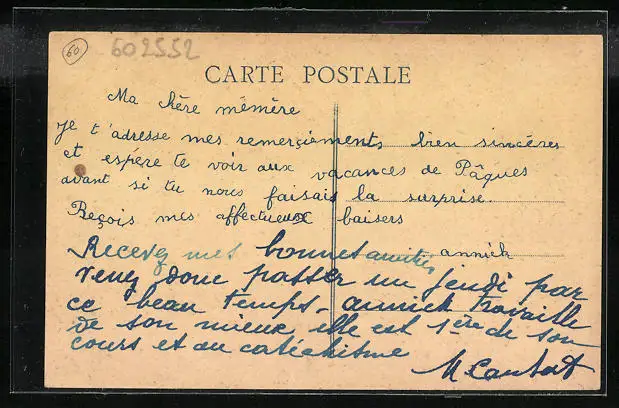 60
602552
CARTE POSTALE
Ma chère mémère
Je t'adresse mes remerçiements bien sincères
et espère te voir aux vacances de Pâques
avant si tu nous faisais la surprise.
Reçois mes affectueux baisers
annick
Recevez mes bonnes amitiés
Venez donc passer un jeudi par
ce beau temps - annick travaille
de son mieux elle est 1ère de son
cours et au catéchisme
M